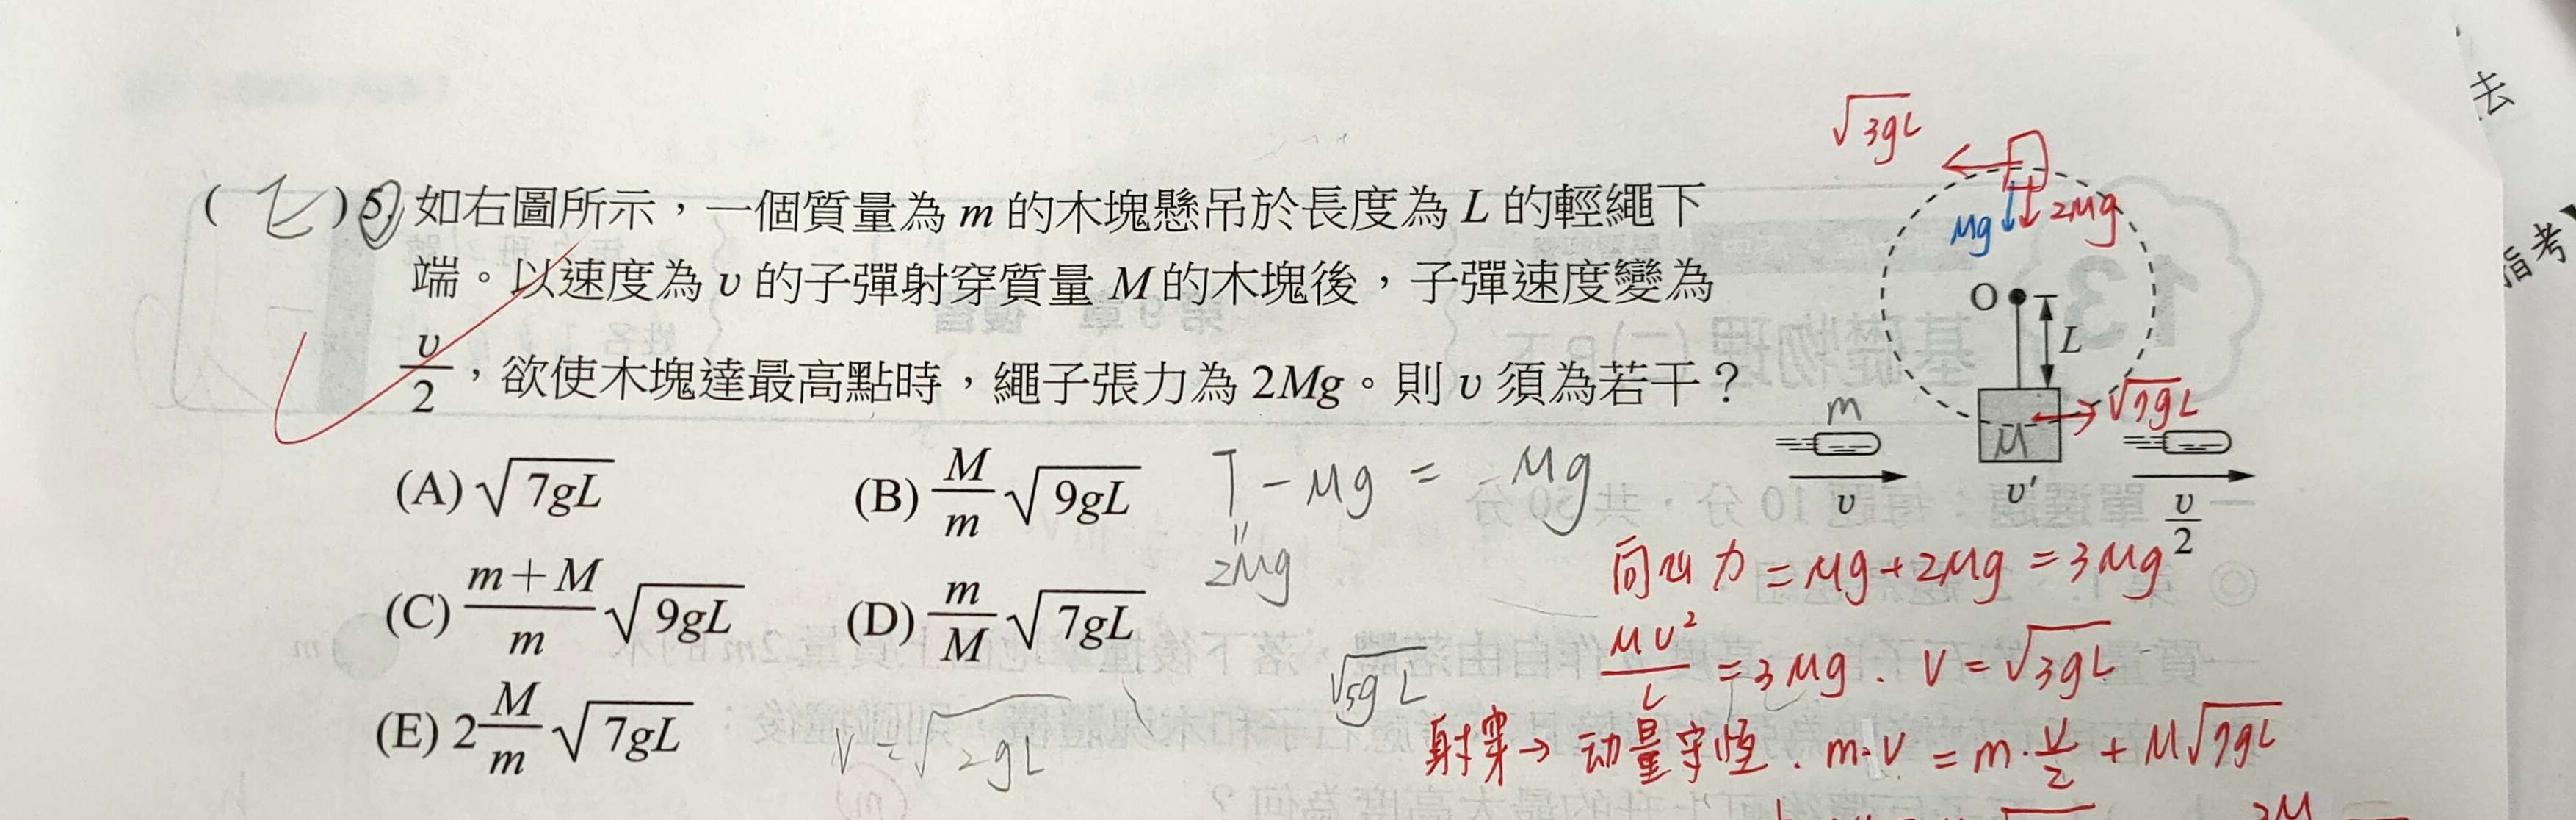 (E) 5. 如右圖所示，一個質量為 m 的木塊懸吊於長度為 L 的輕繩下
端。以速度為 v 的子彈射穿質量 M 的木塊後，子彈速度變為
v/2，欲使木塊達最高點時，繩子張力為 2Mg。則 v 須為若干？
(A) √7gL
(B) M/m √9gL
(C) m+M/m √9gL
(D) m/M √7gL
(E) 2 M/m √7gL
T - Mg = Mg
2Mg
√5gL
V = √2gL
√3gL
Mg
2Mg
O
L
m
M
√7gL
v
v'
v/2
向心力 = Mg + 2Mg = 3Mg
MV²/L = 3Mg . V = √3gL
射穿→动量守恒. m·V = m·V/2 + M√7gL
2M
去
指考